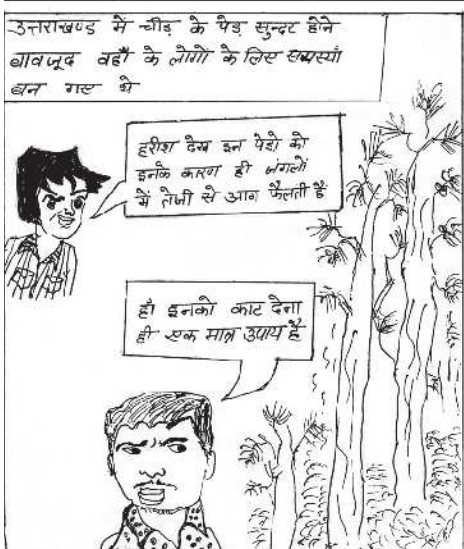 उत्तराखण्ड में चीड़ के पेड़ सुन्दर होने
बावजूद वहाँ के लोगों के लिए समस्याँ
बन गए थे
हरीश देख इन पेडो को
इनके कारण ही जंगलों
में तेजी से आग फैलती है
हाँ इनको काट देना
ही एक मात्र उपाय है